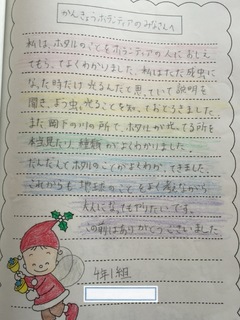 かんきょうボランティアのみなさんへ
私は、ホタルのことをボランティアの人におしえ
てもらってよくわかりました。私はただ成虫に
なった時だけ光るんだと思っていて説明を
聞き、よう虫も光ることを知っておどろきました。
また廊下の川の所で、ホタルが光ってる所を
見たり、種類がよくわかりました。
だんだんとホタルのことがよくわかってきました。
これからも地球のことをよく考えながら
大人になってもやりたいです。
この前はありがとうございました。
4年1組